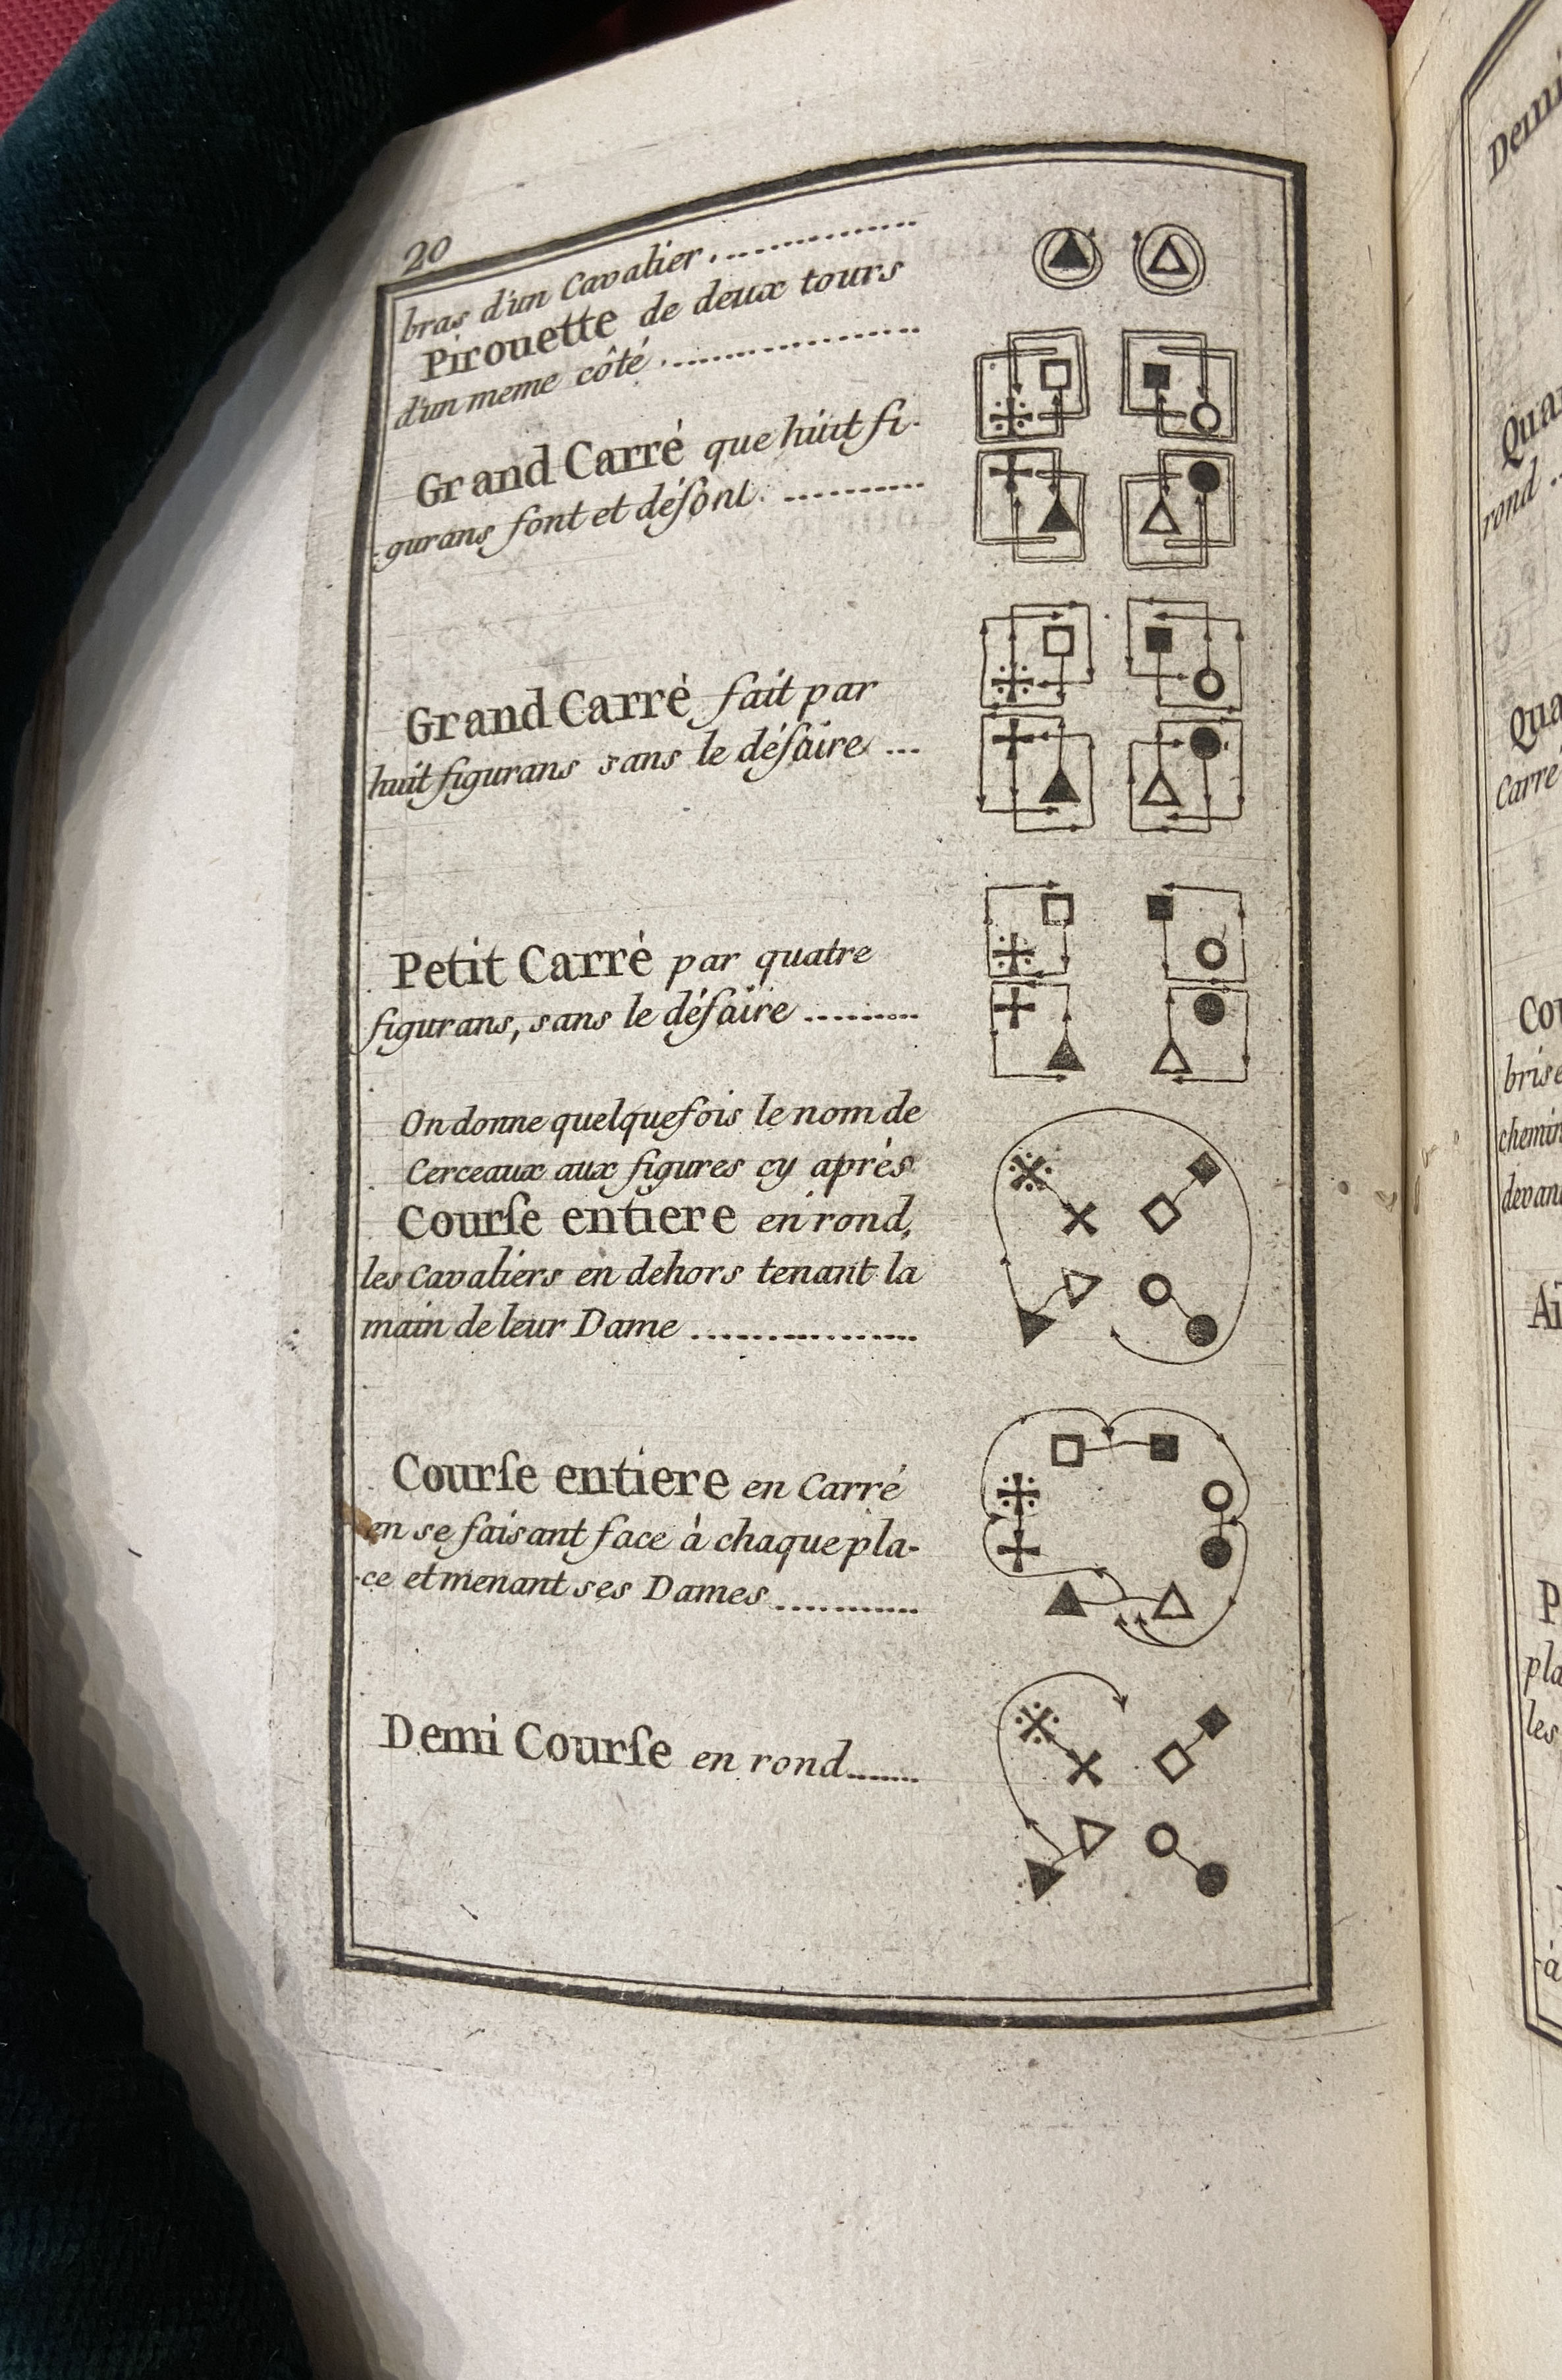 20
bras d'un Cavalier
Pirouette de deux tours
d'un meme côté
Grand Carré que huit fi-
gurans font et défont.
Grand Carré fait par
huit figurans sans le défaire
Petit Carré par quatre
figurans, sans le défaire
On donne quelquefois le nom de
Cerceaux aux figures cy après
Courſe entiere en rond,
les Cavaliers en dehors tenant la
main de leur Dame
Courſe entiere en Carré
en se faisant face à chaque pla-
ce et menant ses Dames
Demi Courſe en rond
rond
Carré
chemin
les
à